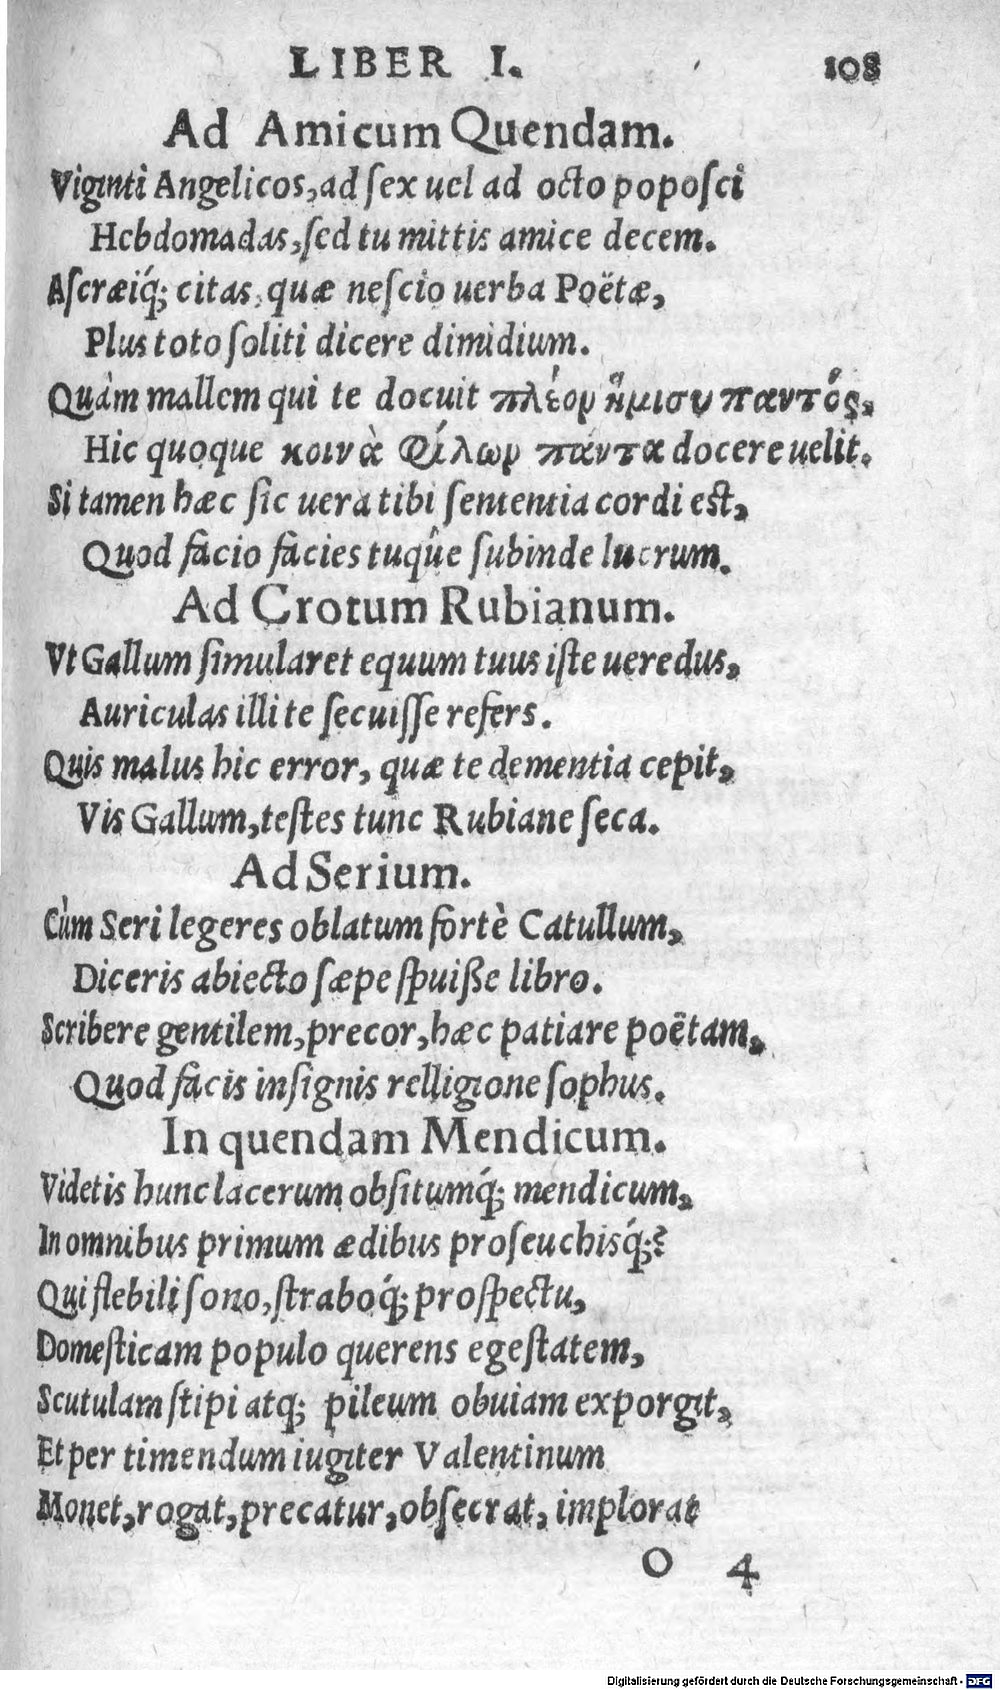 LIBER I. 108
Ad Amicum Quendam.
Viginti Angelicos, ad ſex uel ad octo popoſci
Hebdomadas, ſed tu mittis amice decem.
Aſcræiq́; citas, quæ neſcio uerba Poëtæ,
Plus toto ſoliti dicere dimidium.
Quàm mallem qui te docuit πλέον ἥμισυ παντός,
Hic quoque κοινὰ φίλων πάντα docere uelit.
Si tamen hæc ſic uera tibi ſententia cordi eſt,
Quod facio facies tuq́ue ſubinde lucrum.
Ad Crotum Rubianum.
Vt Gallum ſimularet equum tuus iſte ueredus,
Auriculas illi te ſecuiſſe refers.
Quis malus hic error, quæ te dementia cepit,
Vis Gallum, teſtes tunc Rubiane ſeca.
Ad Serium.
Cùm Seri legeres oblatum fortè Catullum,
Diceris abiecto ſæpe ſpuiße libro.
Scribere gentilem, precor, hæc patiare poëtam,
Quod facis inſignis relligione ſophus.
In quendam Mendicum.
Videtis hunc lacerum obſitumq́; mendicum,
In omnibus primum ædibus proſeuchisq́;?
Qui flebili ſono, ſtraboq́; proſpectu,
Domeſticam populo querens egeſtatem,
Scutulam ſtipi atq; pileum obuiam exporgit,
Et per timendum iugiter Valentinum
Monet, rogat, precatur, obſecrat, implorat
O 4
Digitalisierung gefördert durch die Deutsche Forschungsgemeinschaft - DFG